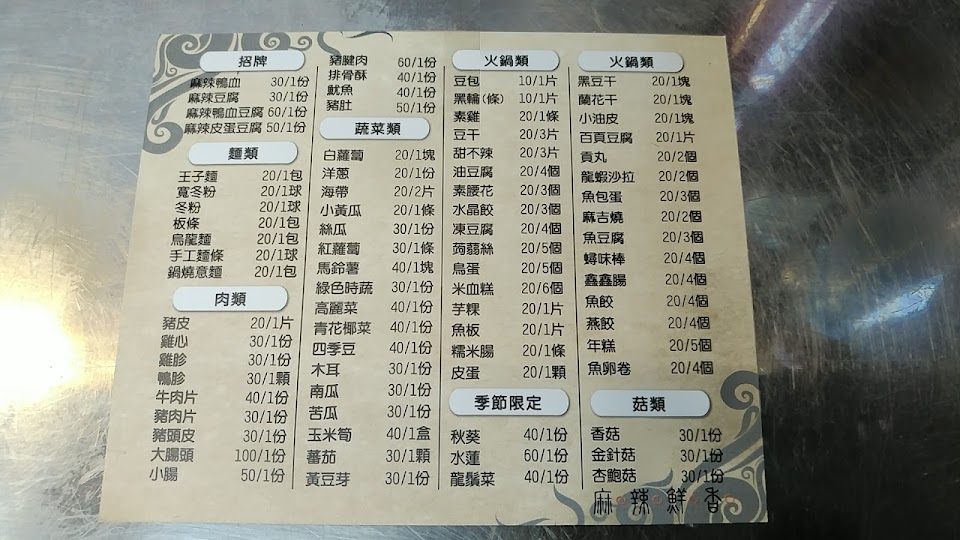 招牌
麻辣鴨血 30/1份
麻辣豆腐 30/1份
麻辣鴨血豆腐 60/1份
麻辣皮蛋豆腐 50/1份
麵類
王子麵 20/1包
寬冬粉 20/1球
冬粉 20/1球
板條 20/1包
烏龍麵 20/1包
手工麵條 20/1球
鍋燒意麵 20/1包
肉類
豬皮 20/1片
雞心 30/1份
雞胗 30/1份
鴨胗 30/1顆
牛肉片 40/1份
豬肉片 30/1份
豬頭皮 30/1份
大腸頭 100/1份
小腸 50/1份
豬腱肉 60/1份
排骨酥 40/1份
魷魚 40/1份
豬肚 50/1份
蔬菜類
白蘿蔔 20/1塊
洋蔥 20/1份
海帶 20/2片
小黃瓜 20/1條
絲瓜 30/1份
紅蘿蔔 30/1條
馬鈴薯 40/1塊
綠色時蔬 30/1份
高麗菜 40/1份
青花椰菜 40/1份
四季豆 40/1份
木耳 30/1份
南瓜 30/1份
苦瓜 30/1份
玉米筍 40/1盒
蕃茄 30/1顆
黃豆芽 30/1份
火鍋類
豆包 10/1片
黑輪(條) 10/1片
素雞 20/1條
豆干 20/3片
甜不辣 20/3片
油豆腐 20/4個
素腰花 20/3個
水晶餃 20/3個
凍豆腐 20/4個
蒟蒻絲 20/5個
鳥蛋 20/5個
米血糕 20/6個
芋粿 20/1片
魚板 20/1片
糯米腸 20/1條
皮蛋 20/1顆
季節限定
秋葵 40/1份
水蓮 60/1份
龍鬚菜 40/1份
火鍋類
黑豆干 20/1塊
蘭花干 20/1塊
小油皮 20/1塊
百頁豆腐 20/1片
貢丸 20/2個
龍蝦沙拉 20/2個
魚包蛋 20/3個
麻吉燒 20/2個
魚豆腐 20/3個
蟳味棒 20/4個
鑫鑫腸 20/4個
魚餃 20/4個
燕餃 20/4個
年糕 20/5個
魚卵卷 20/4個
菇類
香菇 30/1份
金針菇 30/1份
杏鮑菇 30/1份
麻辣鮮香